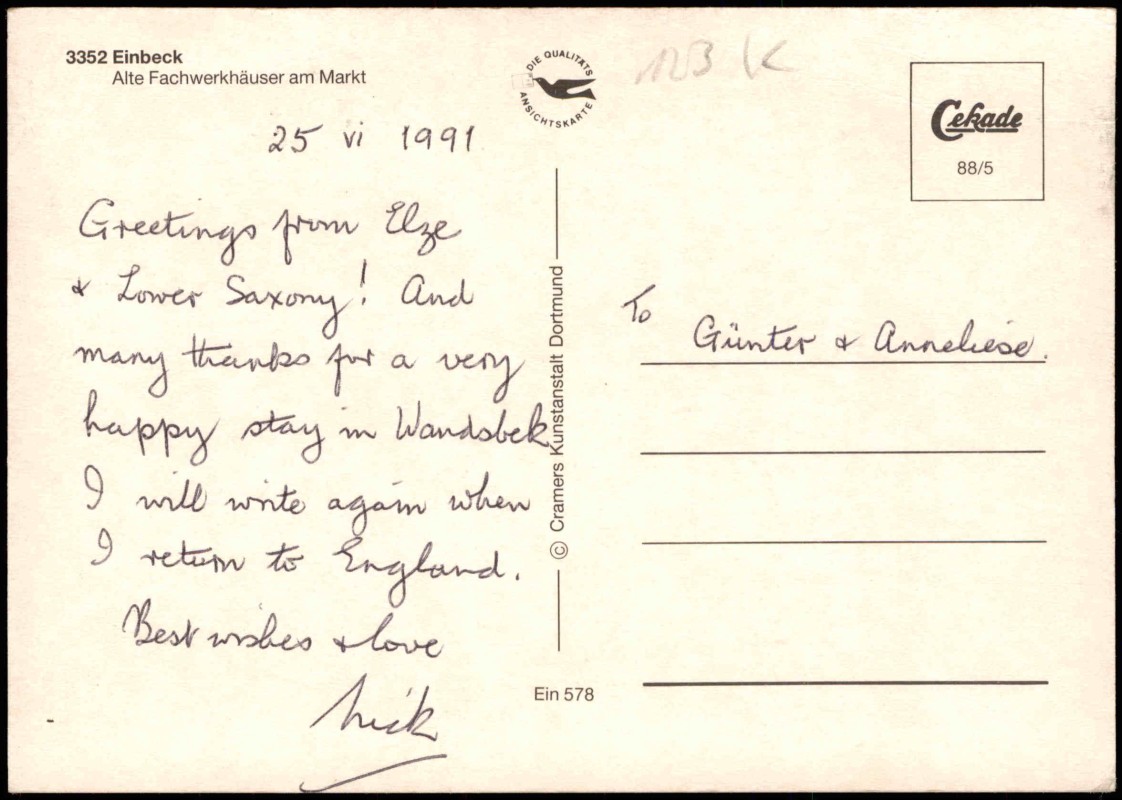 3352 Einbeck
Alte Fachwerkhäuser am Markt
DIE QUALITÄTS
ANSICHTSKARTE
123 K
Cekade
88/5
25 vi 1991
Greetings from Elze
& Lower Saxony! And
many thanks for a very
happy stay in Wandsbek
I will write again when
I return to England.
Best wishes & love
Nick
© Cramers Kunstanstalt Dortmund
Ein 578
To Günter & Anneliese.